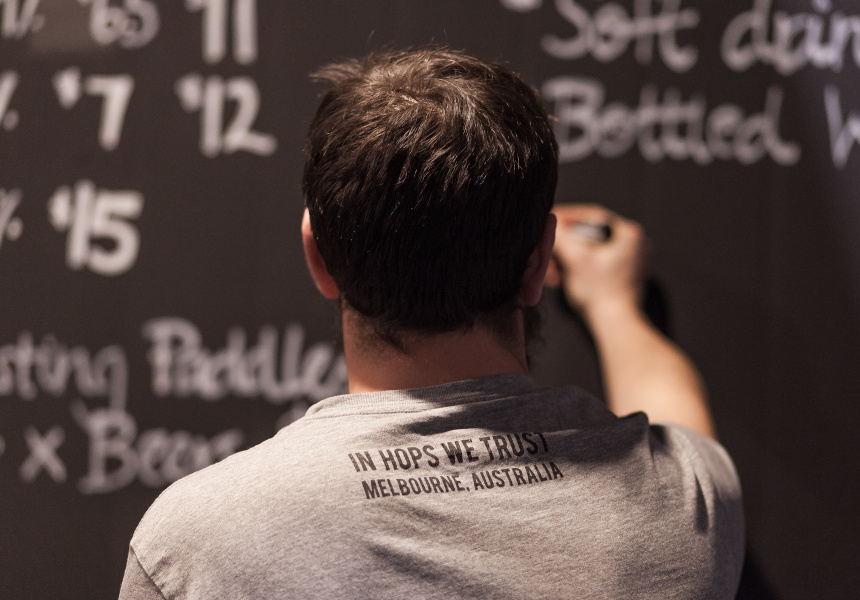 $65 $11
$7 $12
$15
Paddle
x Beers
Soft drin
Bottled
IN HOPS WE TRUST
MELBOURNE, AUSTRALIA